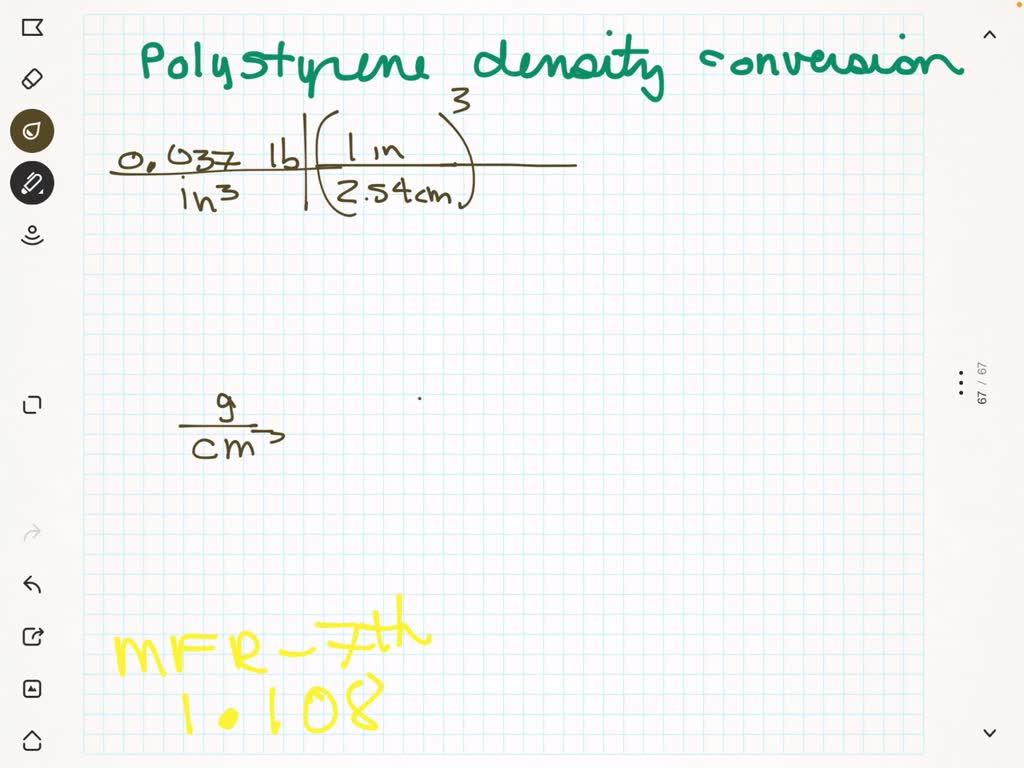 Polystyrene density conversion
0.037 lb | (1 in / 2.54 cm)³
in³
g
cm³
MFR - 7th
1.108
67 / 67